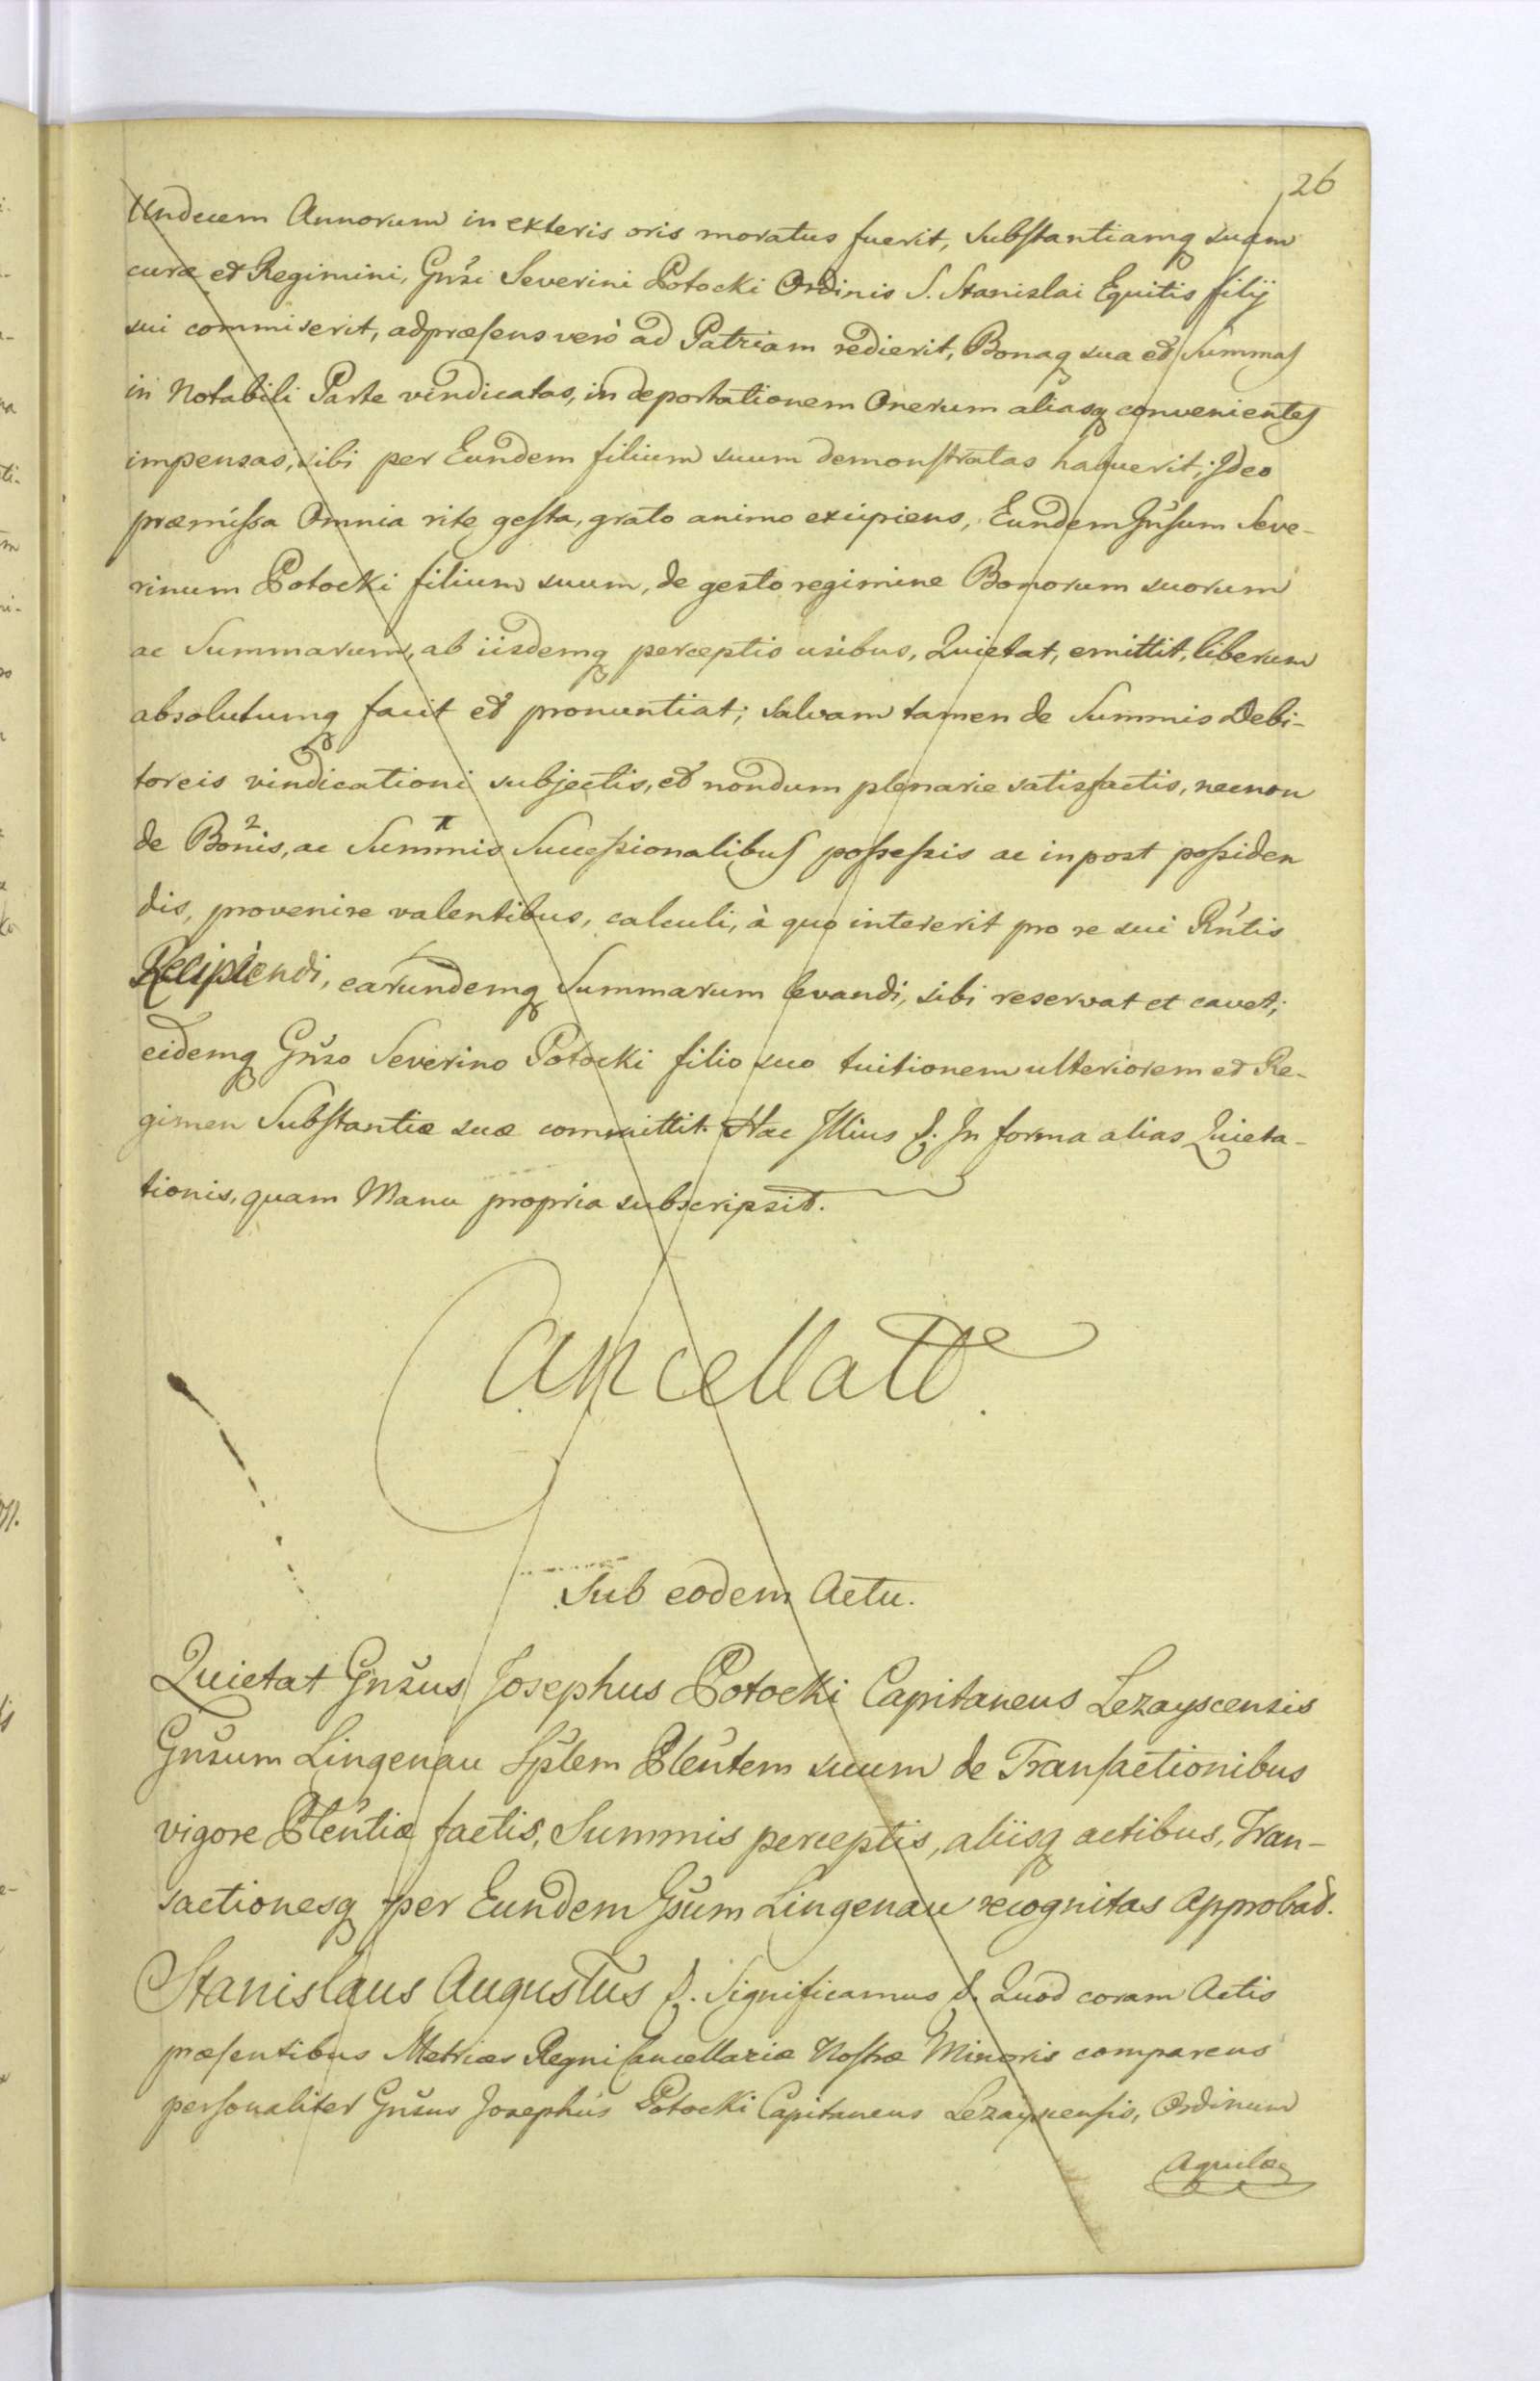 26
Undecem Annorum in exteris oris moratus fuerit, substantiamq suam
curæ et Regimini, Gnsi Severini Potocki Ordinis S. Stanislai Equitis filij
sui commiserit, adpræsens verò ad Patriam redierit, Bonaq sua et Summas
in Notabili Parte vindicatas, in deportationem Onerum aliasq convenientes
impensas, sibi per Eundem filium suum demonstratas habuerit; Ideo
præmissa Omnia rite gesta, grato animo excipiens, Eundem Gnsum Seve-
rinum Potocki filium suum, de gesto regimine Bonorum suorum
ac Summarum, ab iisdemq perceptis usibus, Quietat, emittit, liberum
absolutumq facit et pronuntiat; salvam tamen de Summis Debi-
toreis vindicationi subjectis, et nondum plenarie satisfactis, necnon
de Bonis, ac Summis Successionalibus possessis ac inpost possiden
dis, provenire valentibus, calculi, à quo intererit pro re sui Rntis
Recipiendi, earundemq Summarum levandi, sibi reservat et cavet;
eidemq Gnso Severino Potocki filio suo tuitionem ulteriorem et Re-
gimen Substantiæ suæ committit. Hac Illius &. In forma alias Quieta-
tionis, quam Manu propria subscripsit.
Cancellatt
Sub eodem Actu.
Quietat Gnsus Josephus Potocki Capitaneus Lezayscensis
Gnsum Lingenau Splem Plentem suum de Transactionibus
vigore Plentiæ factis, Summis perceptis, aliisq actibus, Tran-
sactionesq per Eundem Gsum Lingenau recognitas Approbat.
Stanislaus Augustus &. Significamus &. Quod coram Actis
præsentibus Metrices Regni Cancellariæ Nostræ Minoris comparens
personaliter Gnsus Josephus Potocki Capitaneus Lezayscensis, Ordinum
Aquilæ